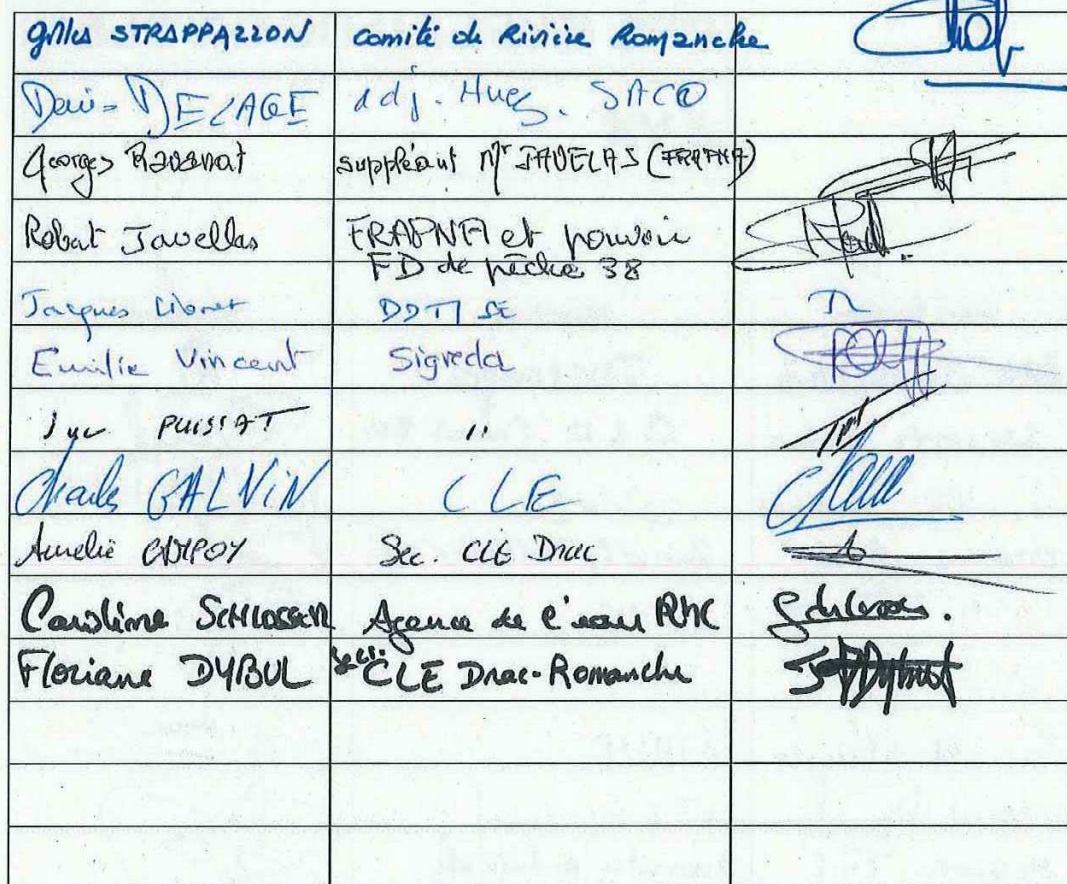 Gilles STRAPPAZZON comité de Rivière Romanche
Denis DELAGE adj. Huez. SACO
Georges Ravanat suppléant Mr JAVELAS (FRAPNA)
Robert Javellas FRAPNA et pouvoir
FD de pêche 38
Jacques Lionet DDT/SE
Emilie Vincent Sigreda
Luc PUISSAT "
Charles GALVIN CLE
Aurélie CAMPOY Sec. CLE Drac
Caroline SCHLOSSER Agence de l'eau RMC
Floriane DYBUL Secr. CLE Drac-Romanche